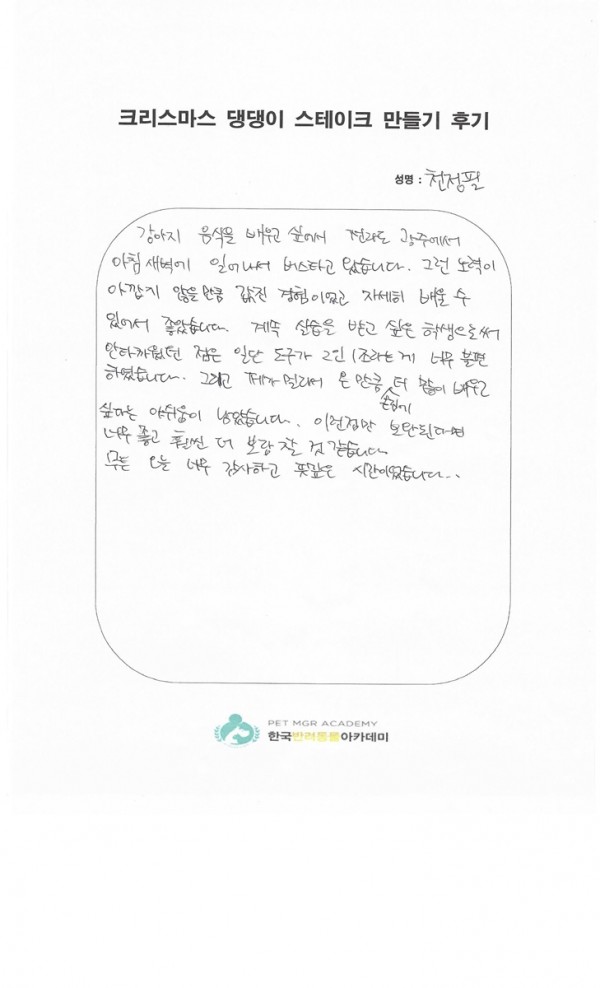 크리스마스 댕댕이 스테이크 만들기 후기
성명 : 천정필
강아지 음식을 배우고 싶어서 전라도 광주에서
아침 새벽에 일어나서 버스타고 왔습니다. 그런 노력이
아깝지 않을 만큼 값진 경험이었고 자세히 배울 수
있어서 좋았습니다. 계속 실습을 받고 싶은 학생으로써
안타까웠던 점은 일단 도구가 2인 1조라는게 너무 불편
하였습니다. 그리고 제가 멀리서 온 만큼 더 많이 배우고
싶다는 아쉬움이 남았습니다. 이런점만 보완된다면
너무 좋고 훨씬 더 보람 찰 것 같습니다
무튼 오늘 너무 감사하고 뜻깊은 시간이었습니다..
PET MGR ACADEMY
한국반려동물아카데미